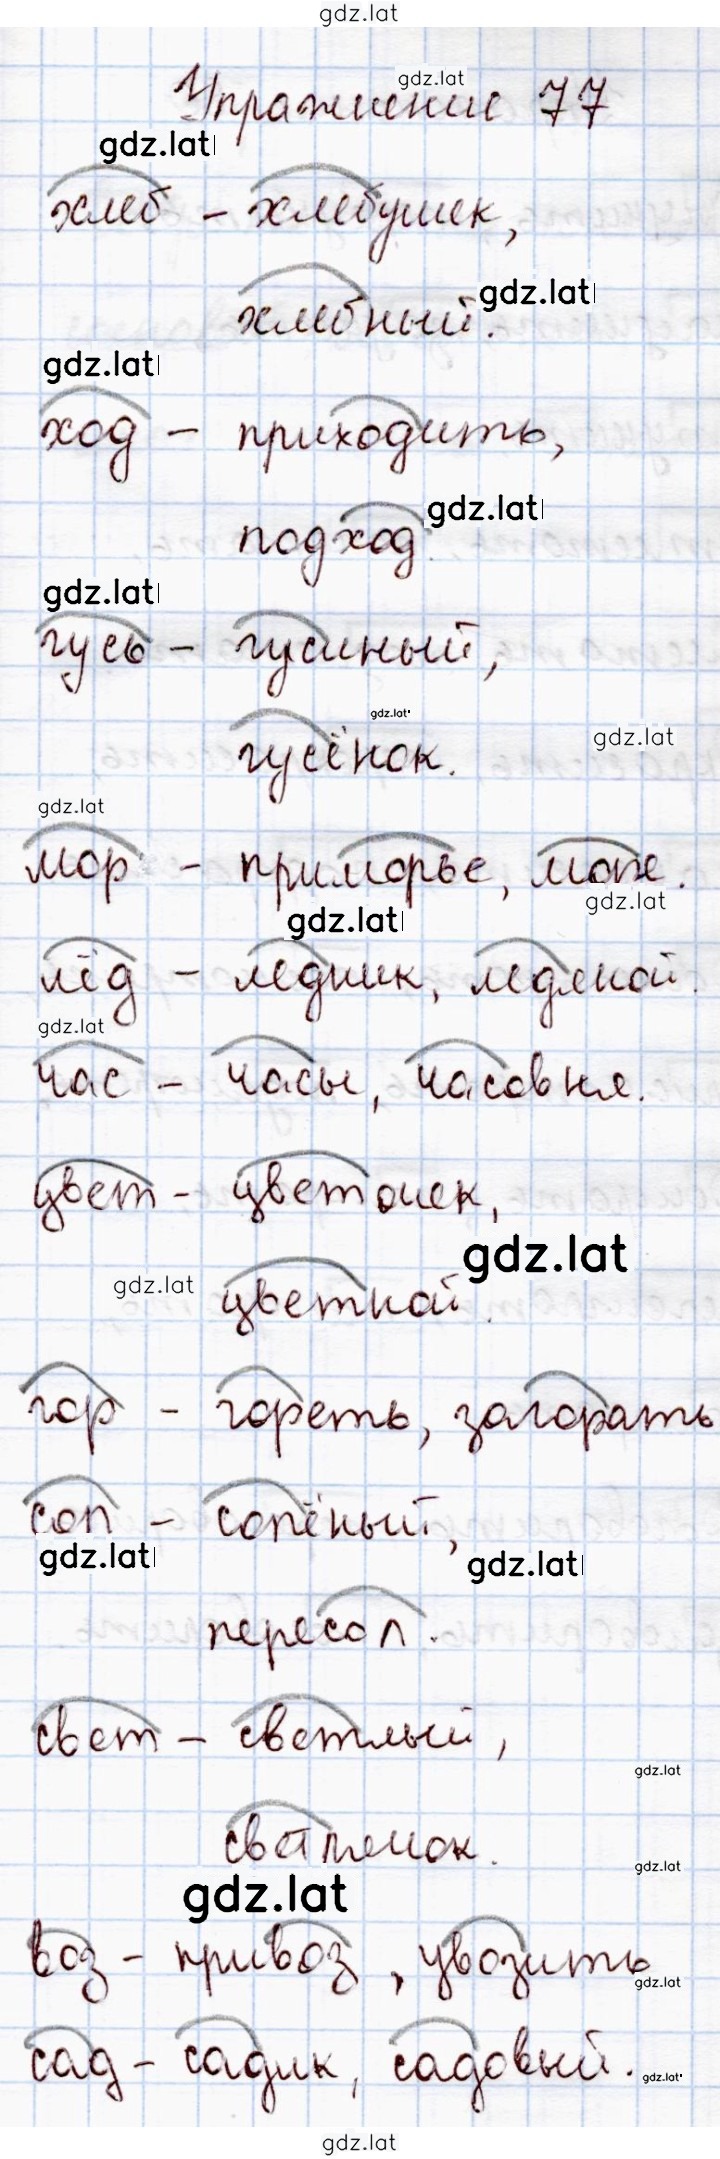 gdz.lat
gdz.lat
Упражнение 77
gdz.lat
хлеб – хлебушек,
хлебный.
gdz.lat
gdz.lat
ход – приходить,
gdz.lat
подход.
gdz.lat
гусь – гусиный,
gdz.lat
гусёнок.
gdz.lat
gdz.lat
мор – приморье, море.
gdz.lat
gdz.lat
лёд – ледник, ледяной.
gdz.lat
час – часы, часовня.
цвет – цветочек,
gdz.lat
gdz.lat
цветной.
гор – гореть, загорать
сол – солёный,
gdz.lat
gdz.lat
пересол.
свет – светлый,
gdz.lat
gdz.lat
gdz.lat
воз – привоз, увозить
gdz.lat
сад – садик, садовый.
gdz.lat
gdz.lat